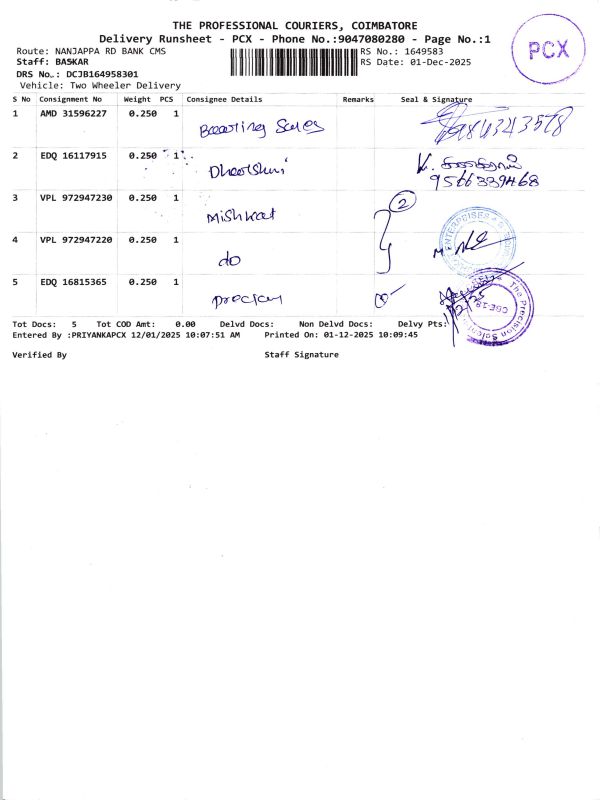 THE PROFESSIONAL COURIERS, COIMBATORE
Delivery Runsheet - PCX - Phone No.:9047080280 - Page No.:1
PCX
Route: NANJAPPA RD BANK CMS
RS No.: 1649583
Staff: BASKAR
RS Date: 01-Dec-2025
DRS No.: DCJB164958301
Vehicle: Two Wheeler Delivery
S No Consignment No Weight PCS Consignee Details Remarks Seal & Signature
1 AMD 31596227 0.250 1 Sales
2 EDQ 16117915 0.250 1
9566339468
3 VPL 972947230 0.250 1 Mishkat
2
4 VPL 972947220 0.250 1 do
5 EDQ 16815365 0.250 1
The Precision
CBE-18
Tot Docs: 5 Tot COD Amt: 0.00 Delvd Docs: Non Delvd Docs: Delvy Pts:
Entered By :PRIYANKAPCX 12/01/2025 10:07:51 AM Printed On: 01-12-2025 10:09:45
Verified By Staff Signature